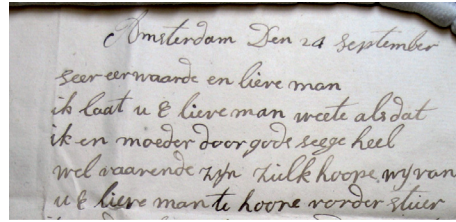 Amsterdam Den 24 September
seer eerwaarde en lieve man
ik laat u E lieve man weete als dat
ik en moeder door gods seege heel
wel vaarende zyn zulk hoope wy van
u E lieve man te hoore vorder stier